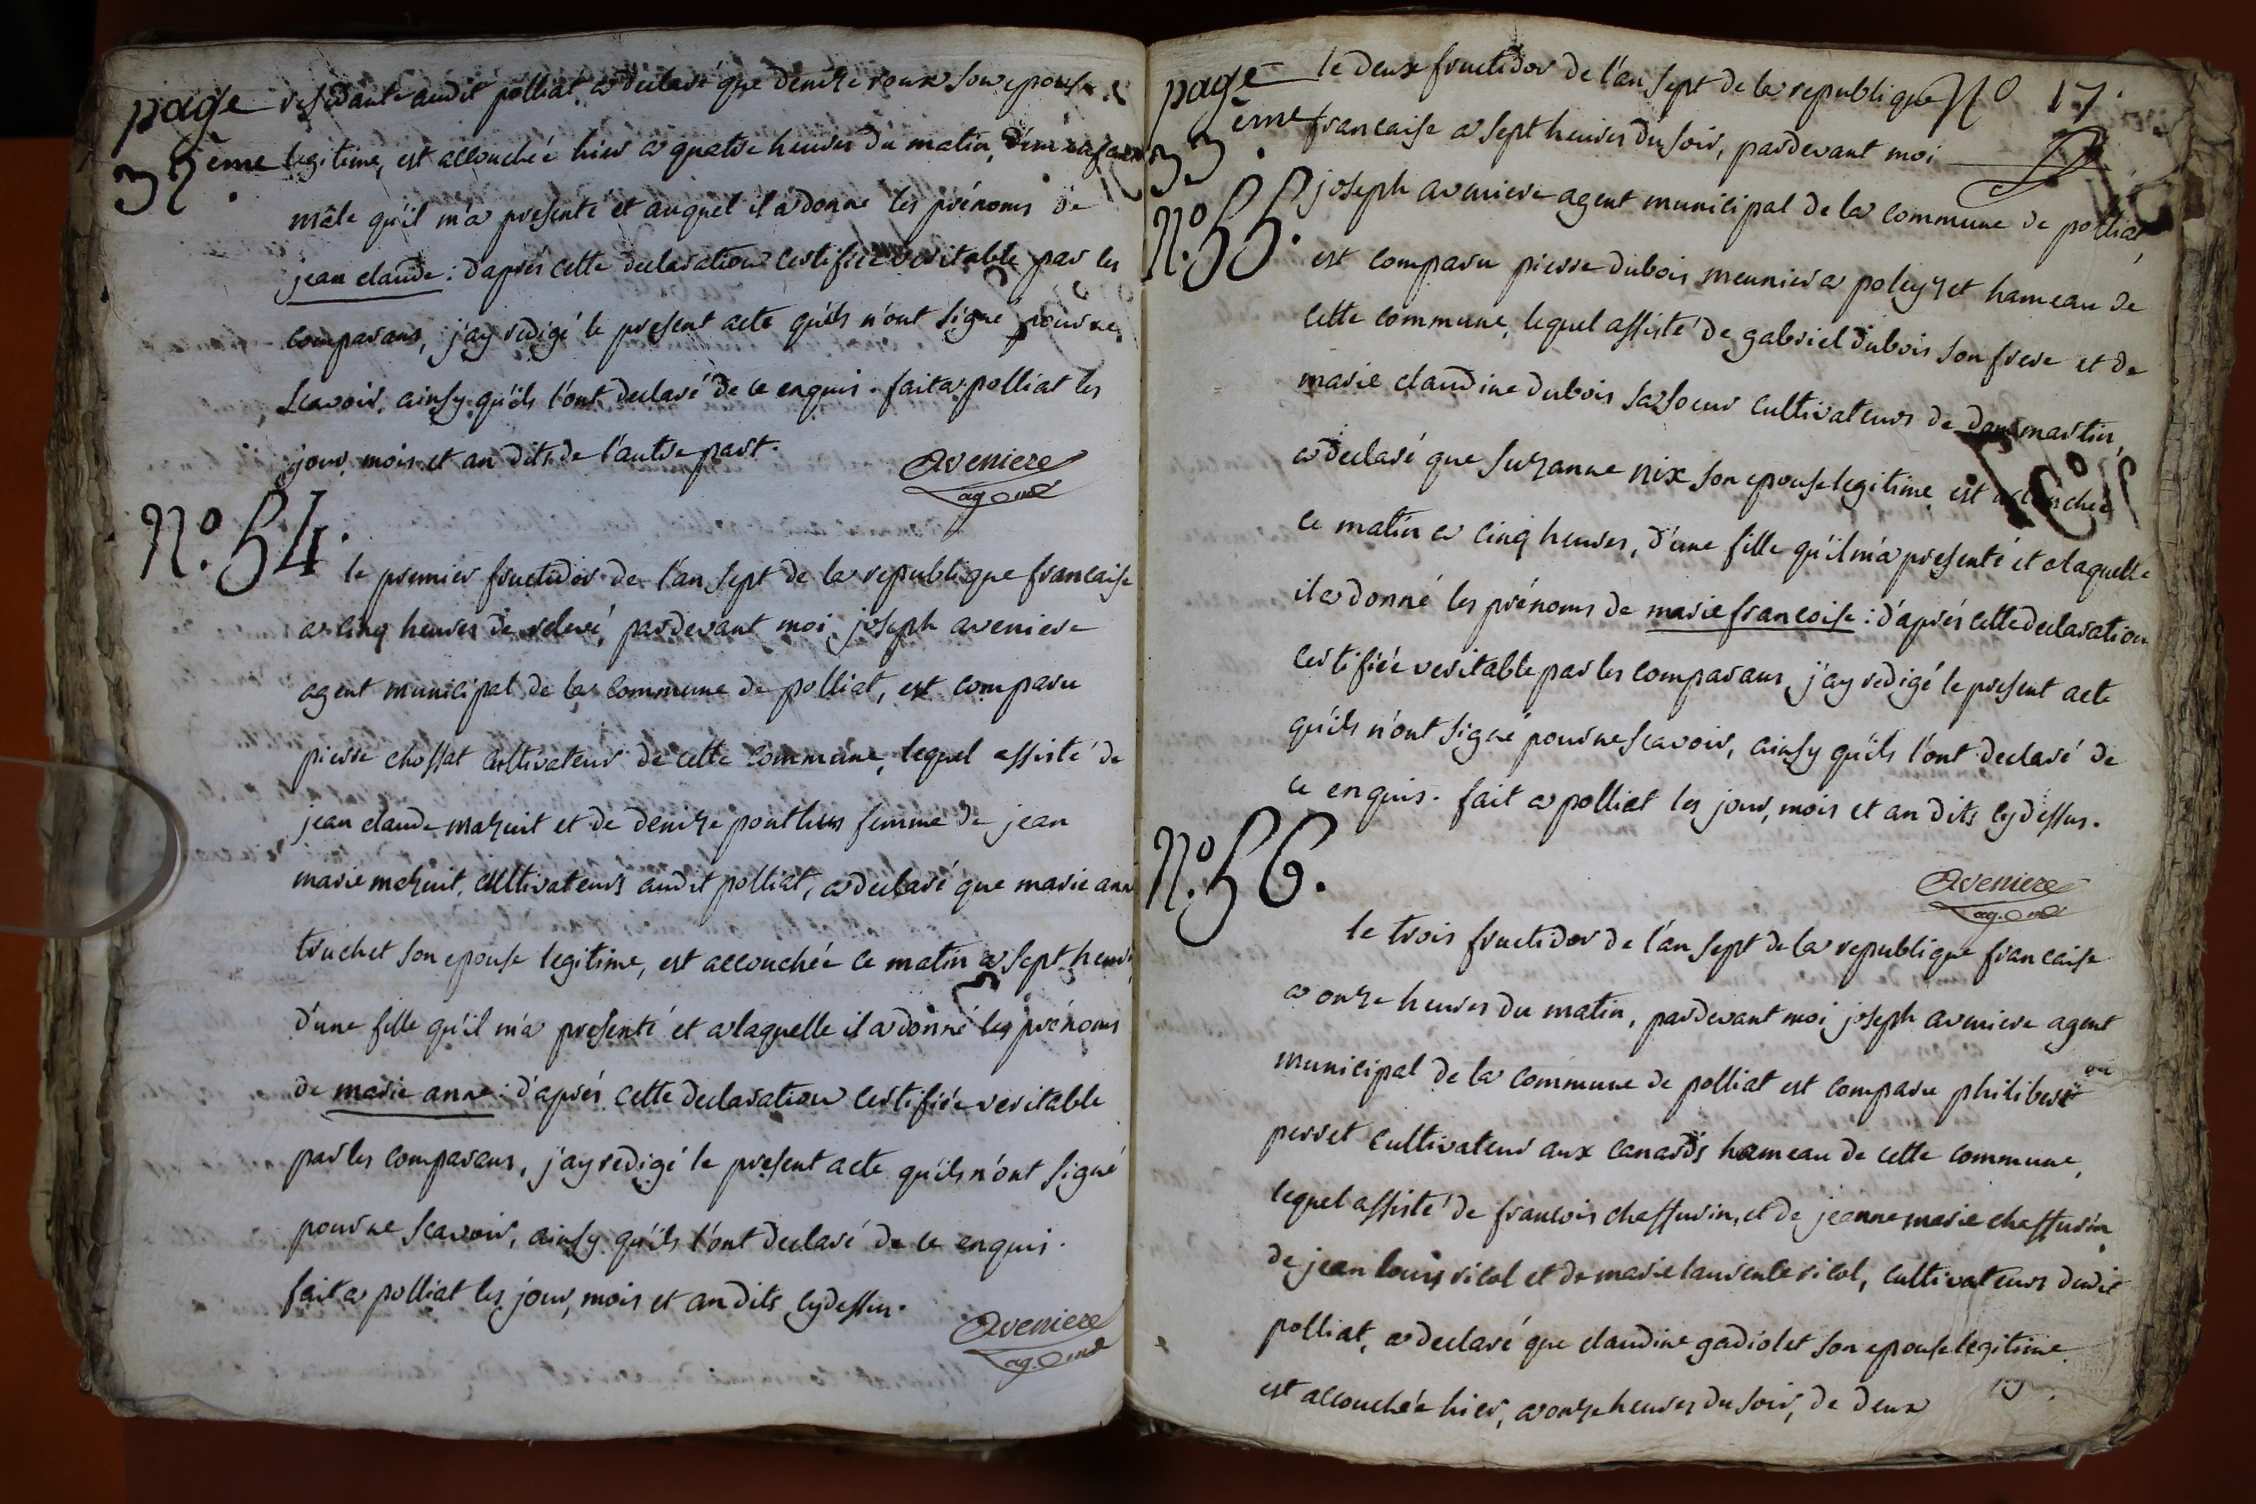 page
32 ème
residante audit polliat a declaré que denize roux son epouse
legitime, est accouchée hier a quatre heures du matin, d'un enfant
mâle qu'il m'a presenté et auquel il a donné les prénoms de
jean claude : d'aprés cette declaration certifiée veritable par les
comparans, j'ay redigé le present acte qu'ils n'ont signé pour ne
scavoir, ainsy qu'ils l'ont declaré de ce enquis. fait a polliat les
jour, mois et an dits de l'autre part.
aveniere
ag. m.
N.º 54.
le premier fructidor de l'an sept de la republique francaise
a cinq heures de relevé, pardevant moi joseph aveniere
agent municipal de la commune de polliat, est comparu
pierre chossat cultivateur de cette commune, lequel assisté de
jean claude mazuit et de denize ponthus femme de jean
marie mazuit, cultivateurs audit polliat, a declaré que marie anne
truchet son epouse legitime, est accouchée ce matin a sept heures
d'une fille qu'il m'a presenté et a laquelle il a donné les prénoms
de marie anne : d'aprés cette declaration certifiée veritable
par les comparans, j'ay redigé le present acte qu'ils n'ont signé
pour ne scavoir, ainsy qu'ils l'ont declaré de ce enquis.
fait a polliat les jour, mois et an dits cy dessus.
aveniere
ag. m.
page
33 ème
Nº 17.
N.º 55.
le deux fructidor de l'an sept de la republique
francaise a sept heures du soir, pardevant moi
joseph aveniere agent municipal de la commune de polliat,
est comparu pierre dubois meunier a poleyzet hameau de
cette commune, lequel assisté de gabriel dubois son frere et de
marie claudine dubois sa soeur cultivateurs de dommartin,
a declaré que suzanne nix son epouse legitime est accouchée
ce matin a cinq heures, d'une fille qu'il m'a presenté et a laquelle
il a donné les prénoms de marie francoise : d'aprés cette declaration
certifiée veritable par les comparans, j'ay redigé le present acte
qu'ils n'ont signé pour ne scavoir, ainsy qu'ils l'ont declaré de
ce enquis. fait a polliat les jour, mois et an dits cy dessus.
aveniere
ag. m.
N.º 56.
le trois fructidor de l'an sept de la republique francaise
a onze heures du matin, pardevant moi joseph aveniere agent
municipal de la commune de polliat est comparu philibert
perret cultivateur aux canards hameau de cette commune,
lequel assisté de francois chaffurin, et de jeanne marie chaffurin,
de jean louis ricol et de marie laurente ricol, cultivateurs dudit
polliat, a declaré que claudine gadiolet son epouse legitime
est accouchée hier, a onze heures du soir, de deux